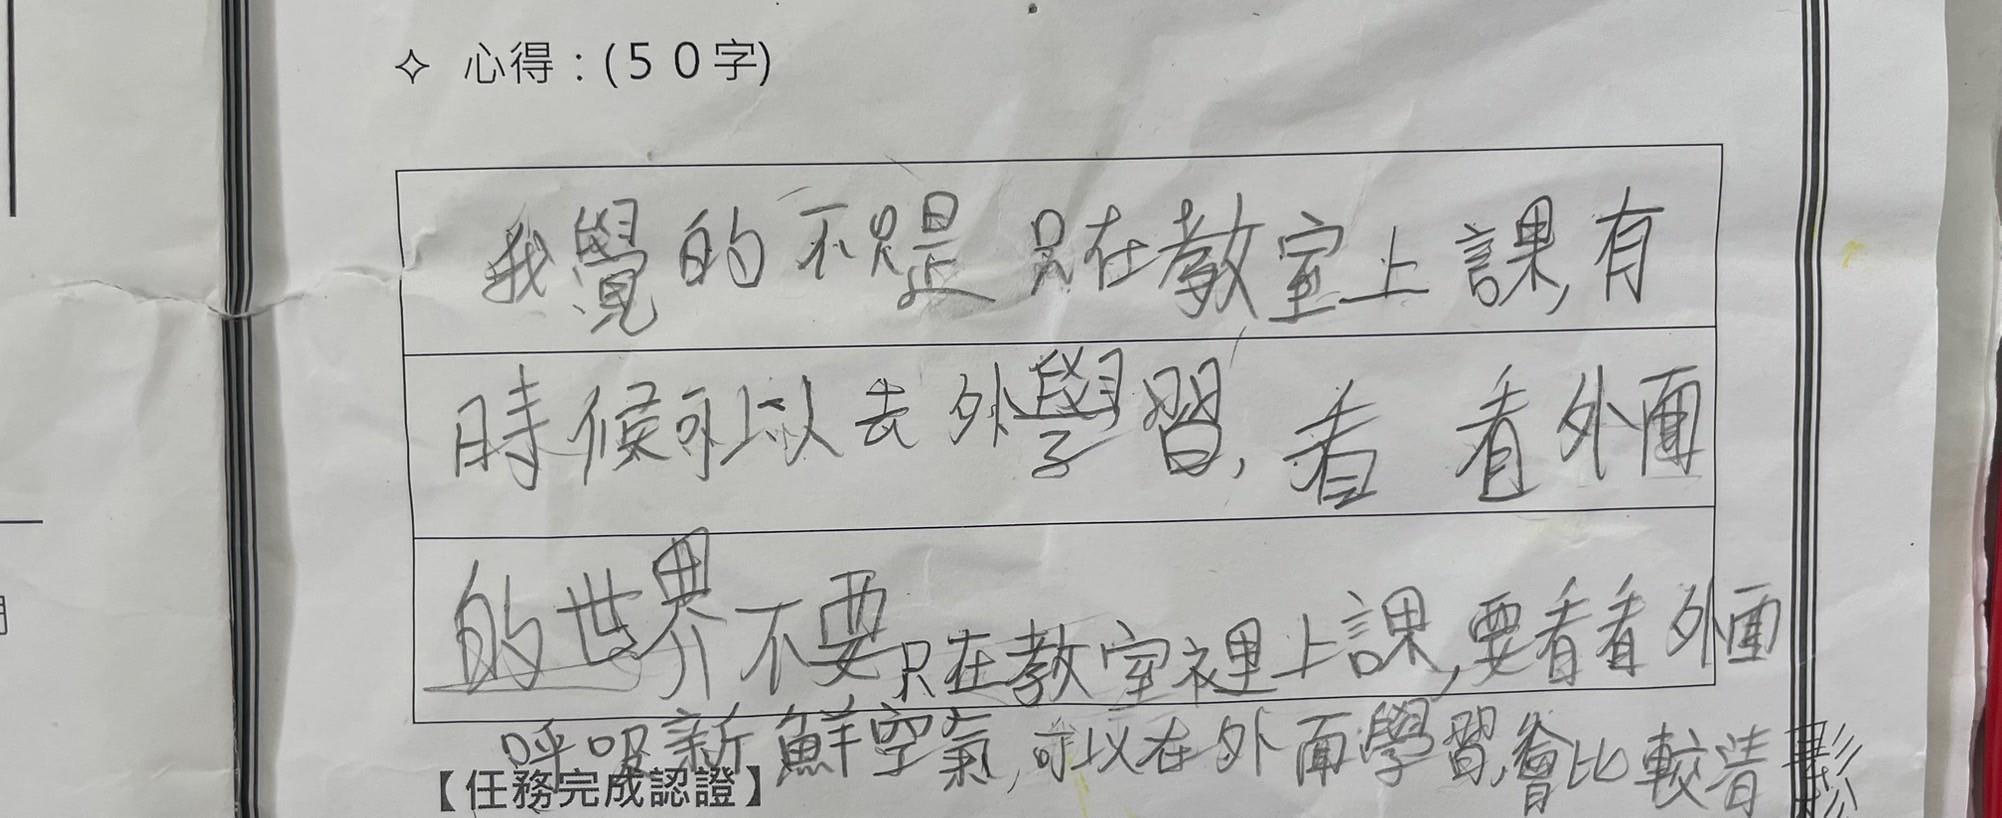 ✧ 心得：(５０字)
我覺的不只是只在教室上課,有
時候可以去外學習,看看外面
的世界不要只在教室裡上課,要看看外面
呼吸新鮮空氣,可以在外面學習,會比較清
【任務完成認證】